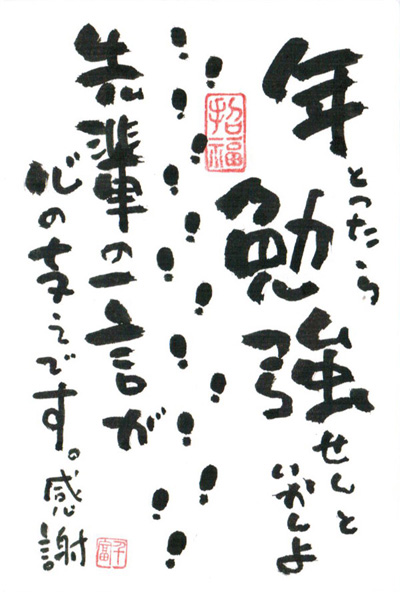 年とったら
勉強せんと
いかんよ
招福
先輩の一言が
心の支えです。感謝